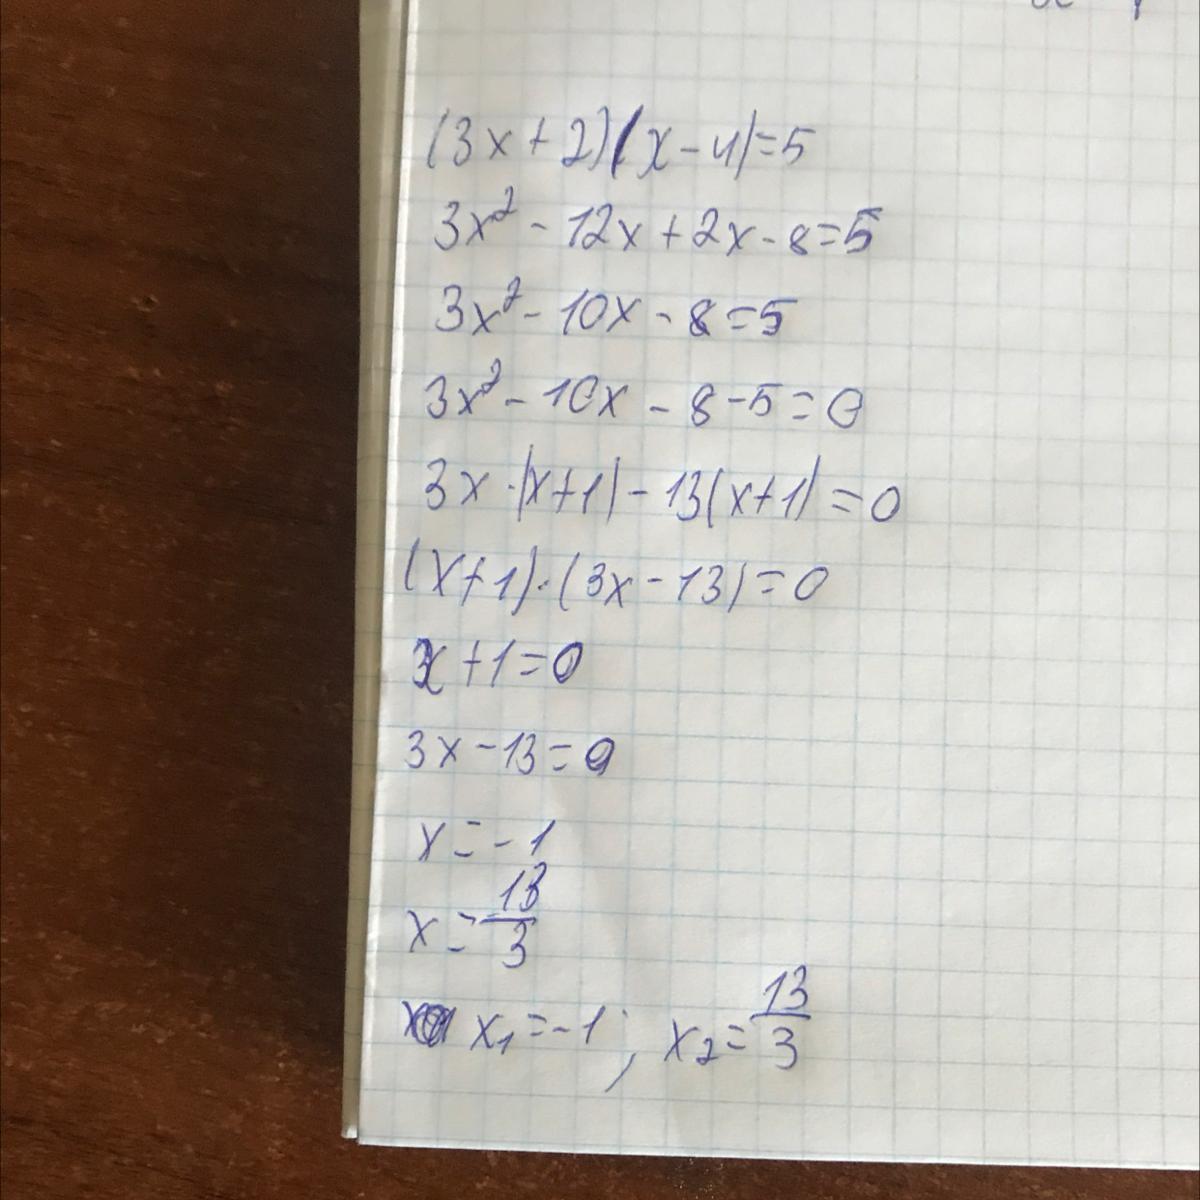 (3x+2)(x-4)=5
3x²-12x+2x-8=5
3x²-10x-8=5
3x²-10x-8-5=0
3x·(x+1)-13(x+1)=0
(x+1)·(3x-13)=0
x+1=0
3x-13=0
x=-1
x=13/3
x₁=-1; x₂=13/3